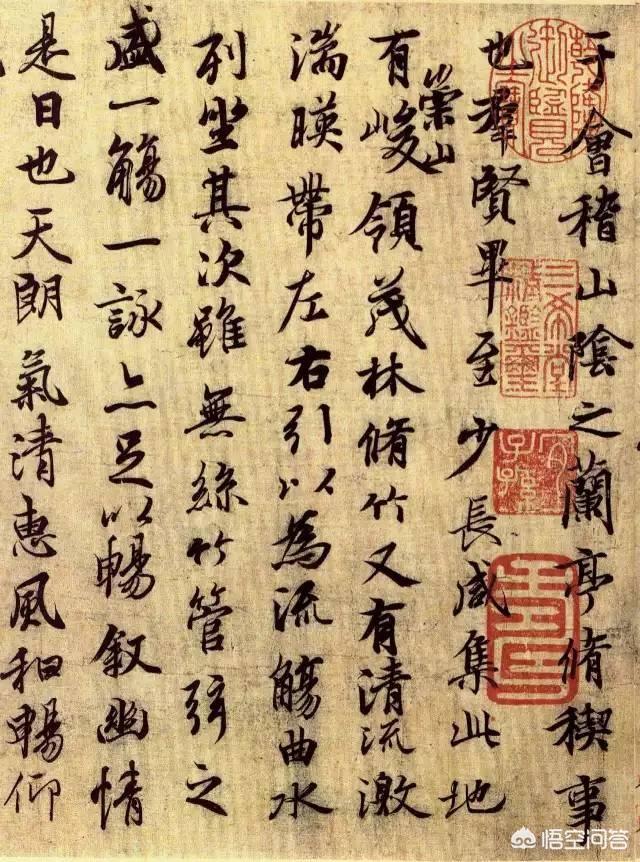 于會稽山陰之蘭亭脩稧事
也羣賢畢至少長咸集此地
有崇山峻領茂林脩竹又有清流激
湍暎帶左右引以為流觴曲水
列坐其次雖無絲竹管弦之
盛一觴一詠亦足以暢叙幽情
是日也天朗氣清惠風和暢仰
三希堂精鑑璽
宜子孫
悟空问答